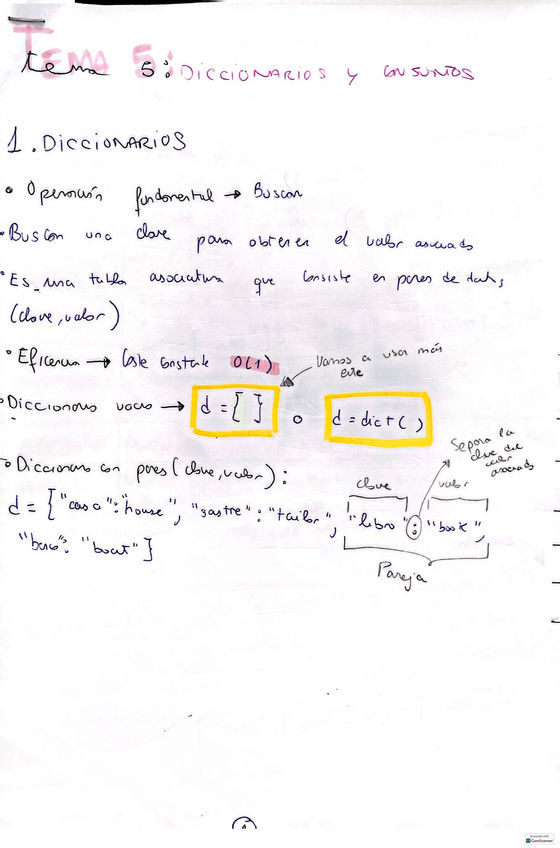 Tema 5: DICCIONARIOS Y CONJUNTOS
1. DICCIONARIOS
• Operación fundamental → Buscar
• Buscar una clave para obtener el valor asociado
• Es una tabla asociativa que consiste en pares de datos
(clave, valor)
• Eficiencia → Coste constante O(1)
Vamos a usar más este
• Diccionarios vacíos → d = { } o d = dict()
Separa la clave del valor asociado
• Diccionarios con pares (clave, valor):
clave valor
d = {"casa": "house", "sastre": "tailor", "libro": "book",
"barco": "boat"}
Pareja
1
Scanned with
CamScanner